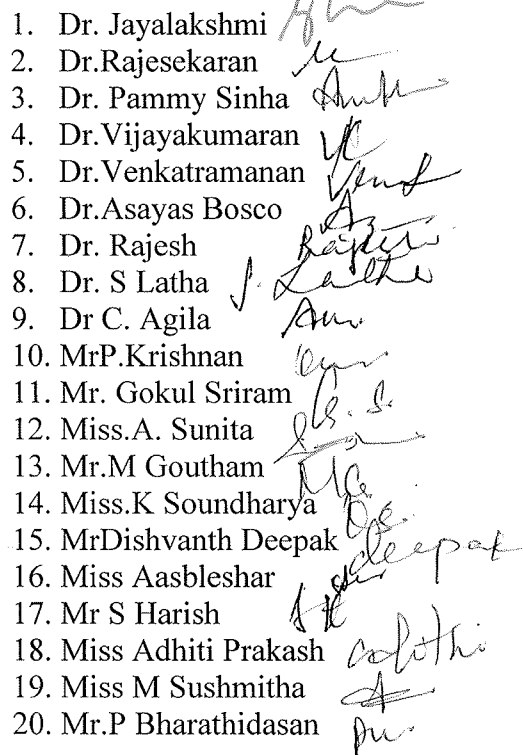 1. Dr. Jayalakshmi
2. Dr.Rajesekaran
3. Dr. Pammy Sinha
4. Dr.Vijayakumaran
5. Dr.Venkatramanan
6. Dr.Asayas Bosco
7. Dr. Rajesh
8. Dr. S Latha S. Latha
9. Dr C. Agila
10. MrP.Krishnan
11. Mr. Gokul Sriram G. S.
12. Miss.A. Sunita
13. Mr.M Goutham
14. Miss.K Soundharya
15. MrDishvanth Deepak deepak
16. Miss Aasbleshar
17. Mr S Harish
18. Miss Adhiti Prakash
19. Miss M Sushmitha
20. Mr.P Bharathidasan